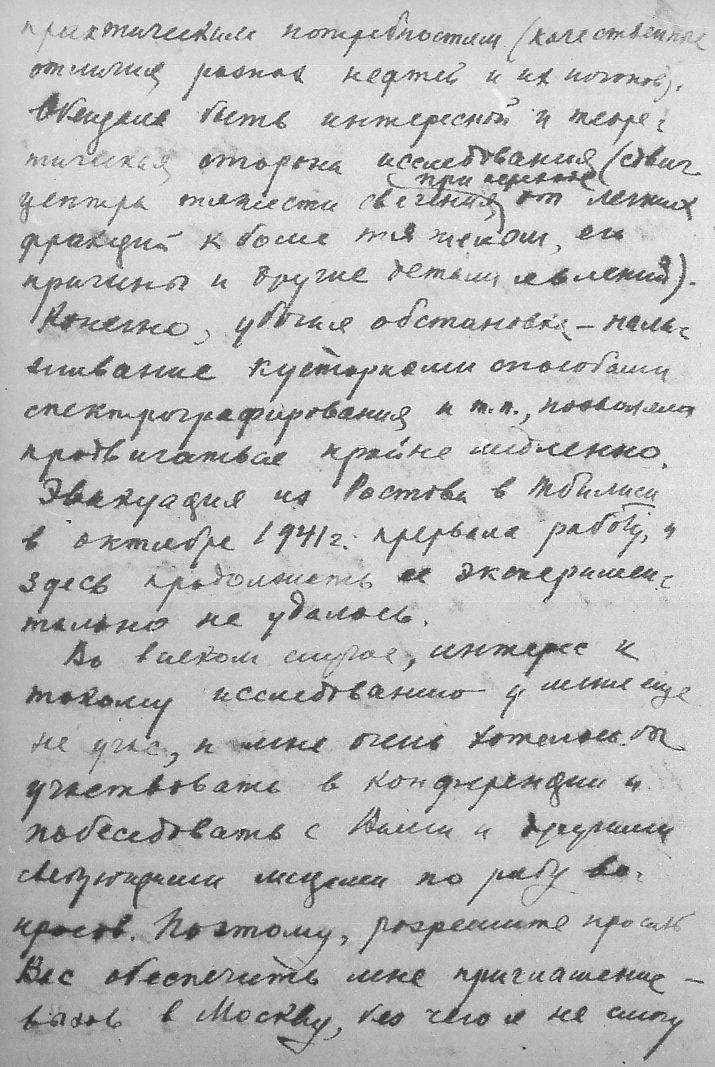 практическим потребностям (качественные
отличия разных нефтей и их погонов).
Обещала быть интересной и теоре-
тическая сторона исследования (сдвиг
центра тяжести свечения при переходе от легких
фракций к более тяжелым, его
причины и другие детали явления).
Конечно, убогая обстановка – нала-
живание кустарными способами
спектрографирования и т.п., позволяла
продвигаться крайне медленно.
Эвакуация из Ростова в Тбилиси
в октябре 1941 г. прервала работу, и
здесь продолжать ее эксперимен-
тально не удалось.
Во всяком случае, интерес к
такому исследованию у меня еще
не угас, и мне очень хотелось бы
участвовать в конференции и
побеседовать с Вами и другими
сведующими лицами по ряду во-
просов. Поэтому, разрешите просить
Вас обеспечить мне приглашение –
вызов в Москву, без чего я не смогу